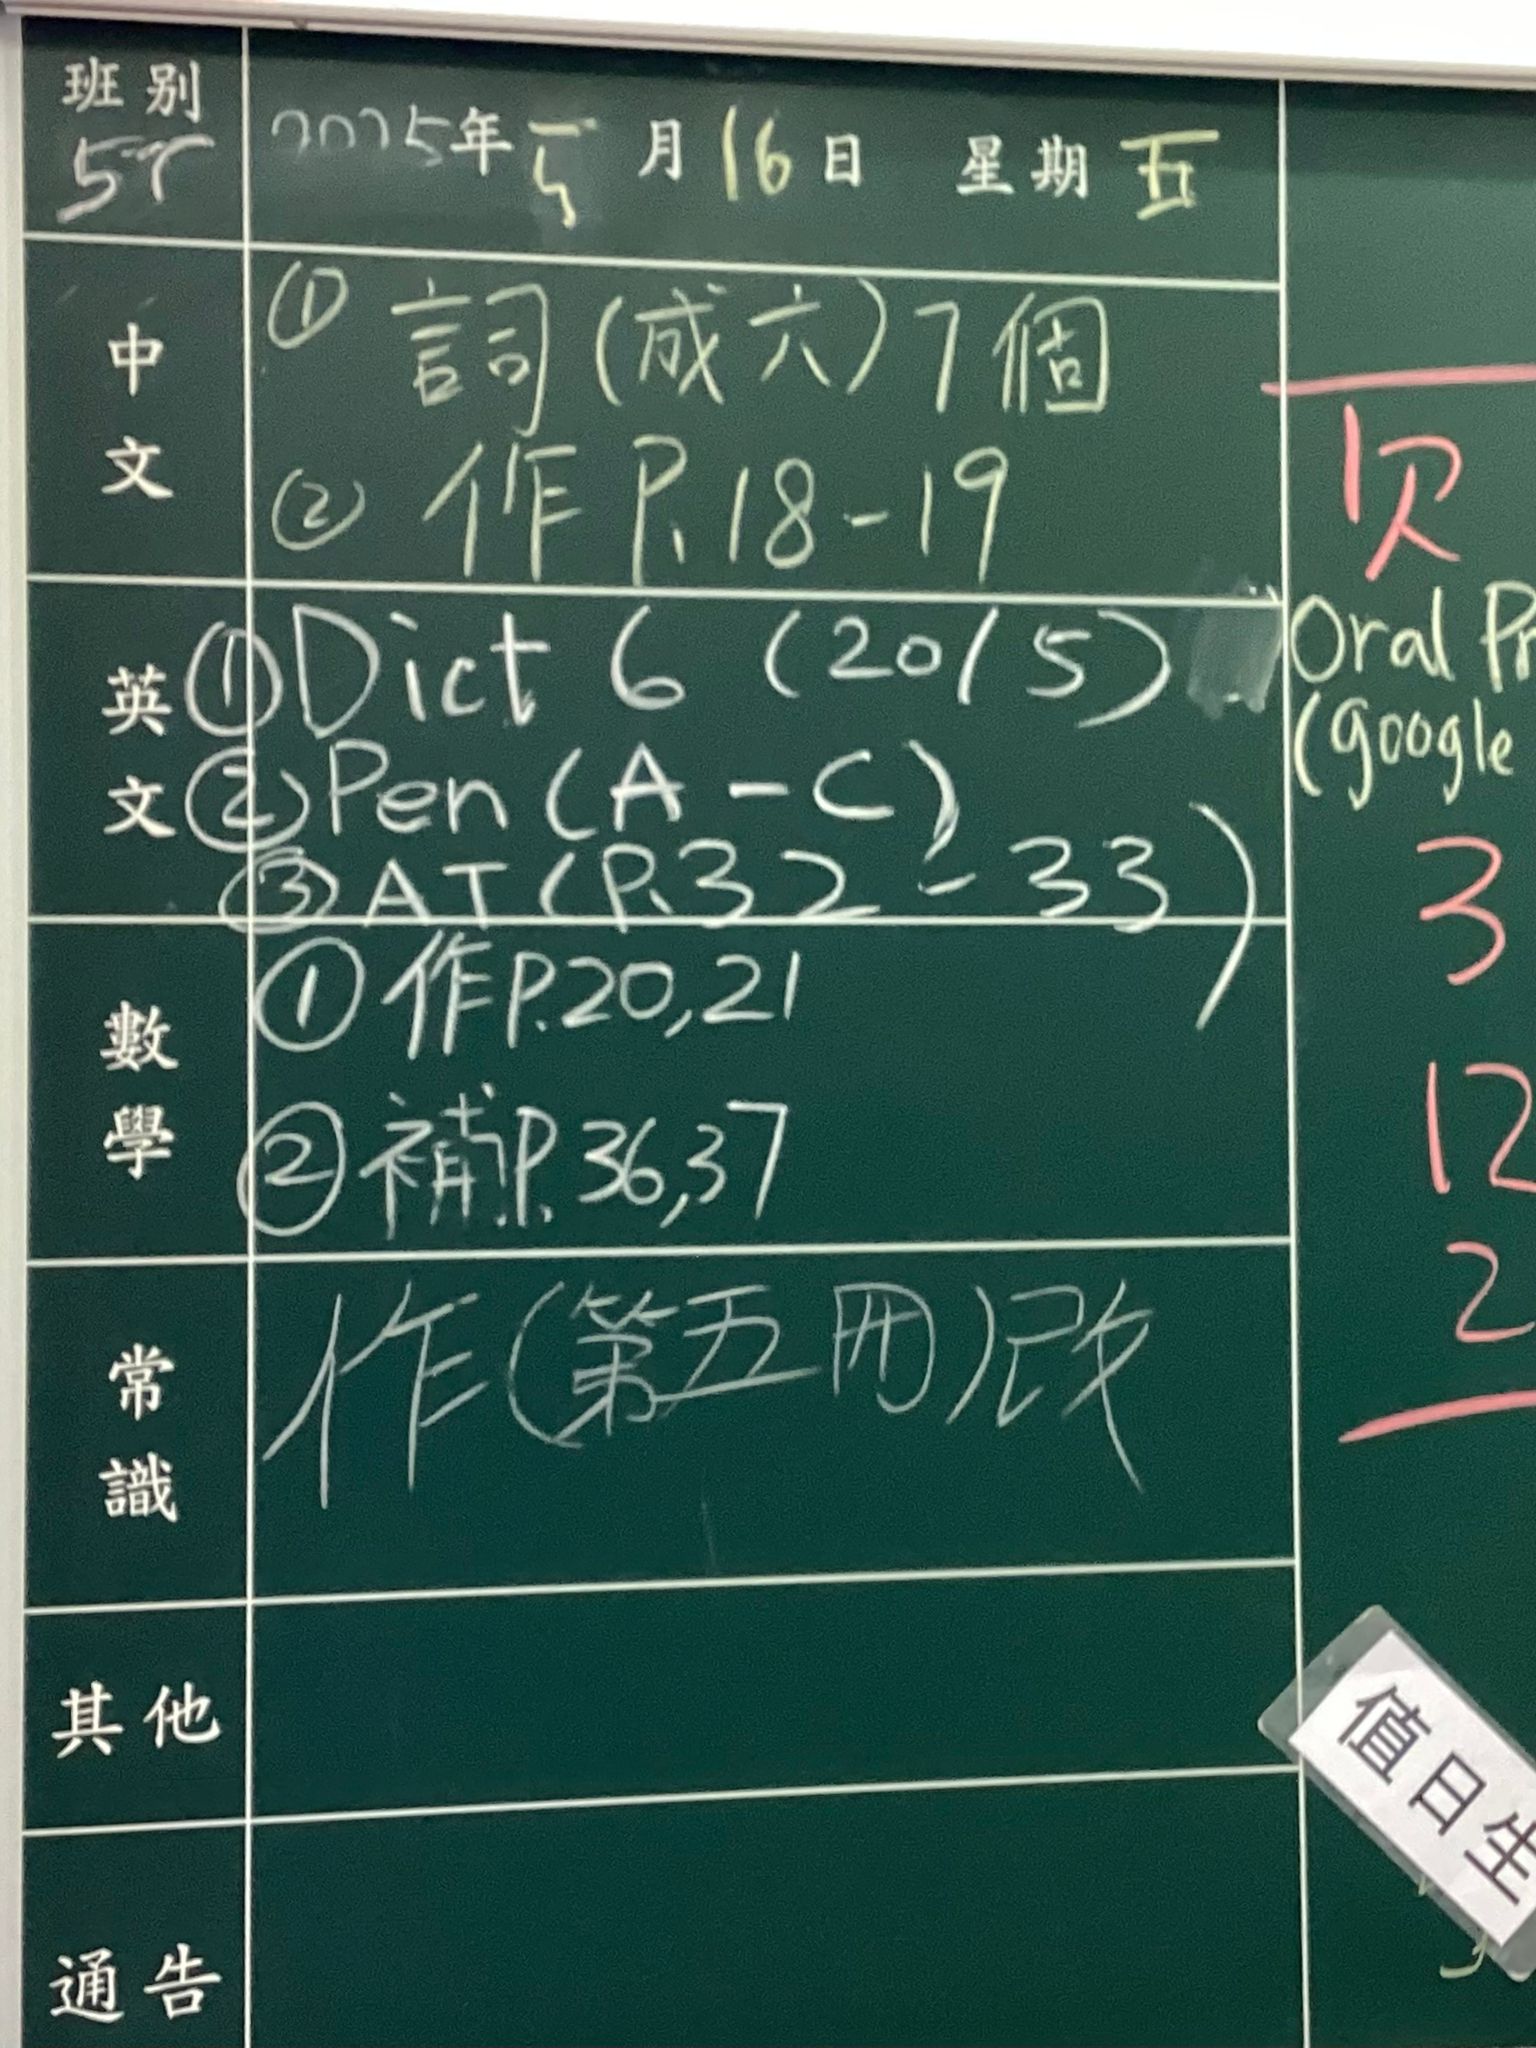 班別
5T
2025年 5 月 16 日 星期 五
中文
① 詞(成六)7個
② 作 P.18-19
英文
① Dict 6 (20/5)
② Pen (A-C)
③ AT (P.32-33)
數學
① 作P.20,21
② 補P.36,37
常識
作(第五冊)改
其他
通告
欠
Oral Pr
(google
3
12
2
值日生